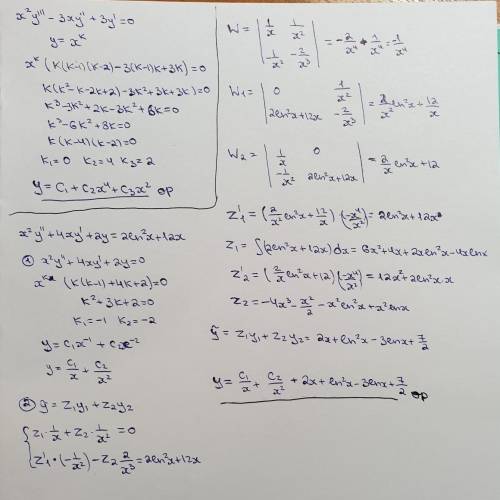 x²y''' - 3xy'' + 3y' = 0
y = x^k
x^k (k(k-1)(k-2) - 3(k-1)k + 3k) = 0
k(k² - k - 2k + 2) - 3k² + 3k + 3k) = 0
k³ - 3k² + 2k - 3k² + 6k = 0
k³ - 6k² + 8k = 0
k(k-4)(k-2) = 0
k₁ = 0 k₂ = 4 k₃ = 2
y = C₁ + C₂x⁴ + C₃x² op
x²y'' + 4xy' + 2y = 2ln²x + 12x
① x²y'' + 4xy' + 2y = 0
x^k (k(k-1) + 4k + 2) = 0
k² + 3k + 2 = 0
k₁ = -1 k₂ = -2
y = C₁x⁻¹ + C₂x⁻²
y = C₁/x + C₂/x²
② ỹ = z₁y₁ + z₂y₂
{ z₁ · 1/x + z₂ · 1/x² = 0
z'₁ · (-1/x²) - z₂ 2/x³ = 2ln²x + 12x
W = | 1/x 1/x² ; -1/x² -2/x³ | = -2/x⁴ + 1/x⁴ = -1/x⁴
W₁ = | 0 1/x² ; 2ln²x + 12x -2/x³ | = 2/x² ln²x + 12/x
W₂ = | 1/x 0 ; -1/x² 2ln²x + 12x | = 2/x ln²x + 12
z'₁ = (2/x² ln²x + 12/x)(-x⁴/x²) = 2ln²x + 12x
z₁ = ∫(2ln²x + 12x)dx = 6x² + 4x + 2xln²x - 4xlnx
z'₂ = (2/x ln²x + 12)(-x⁴/x²) = 12x² + 2ln²x · x
z₂ = -4x³ - x²/2 - x²ln²x + x²lnx
ỹ = z₁y₁ + z₂y₂ = 2x + ln²x - 3lnx + 7/2
y = C₁/x + C₂/x² + 2x + ln²x - 3lnx + 7/2 op